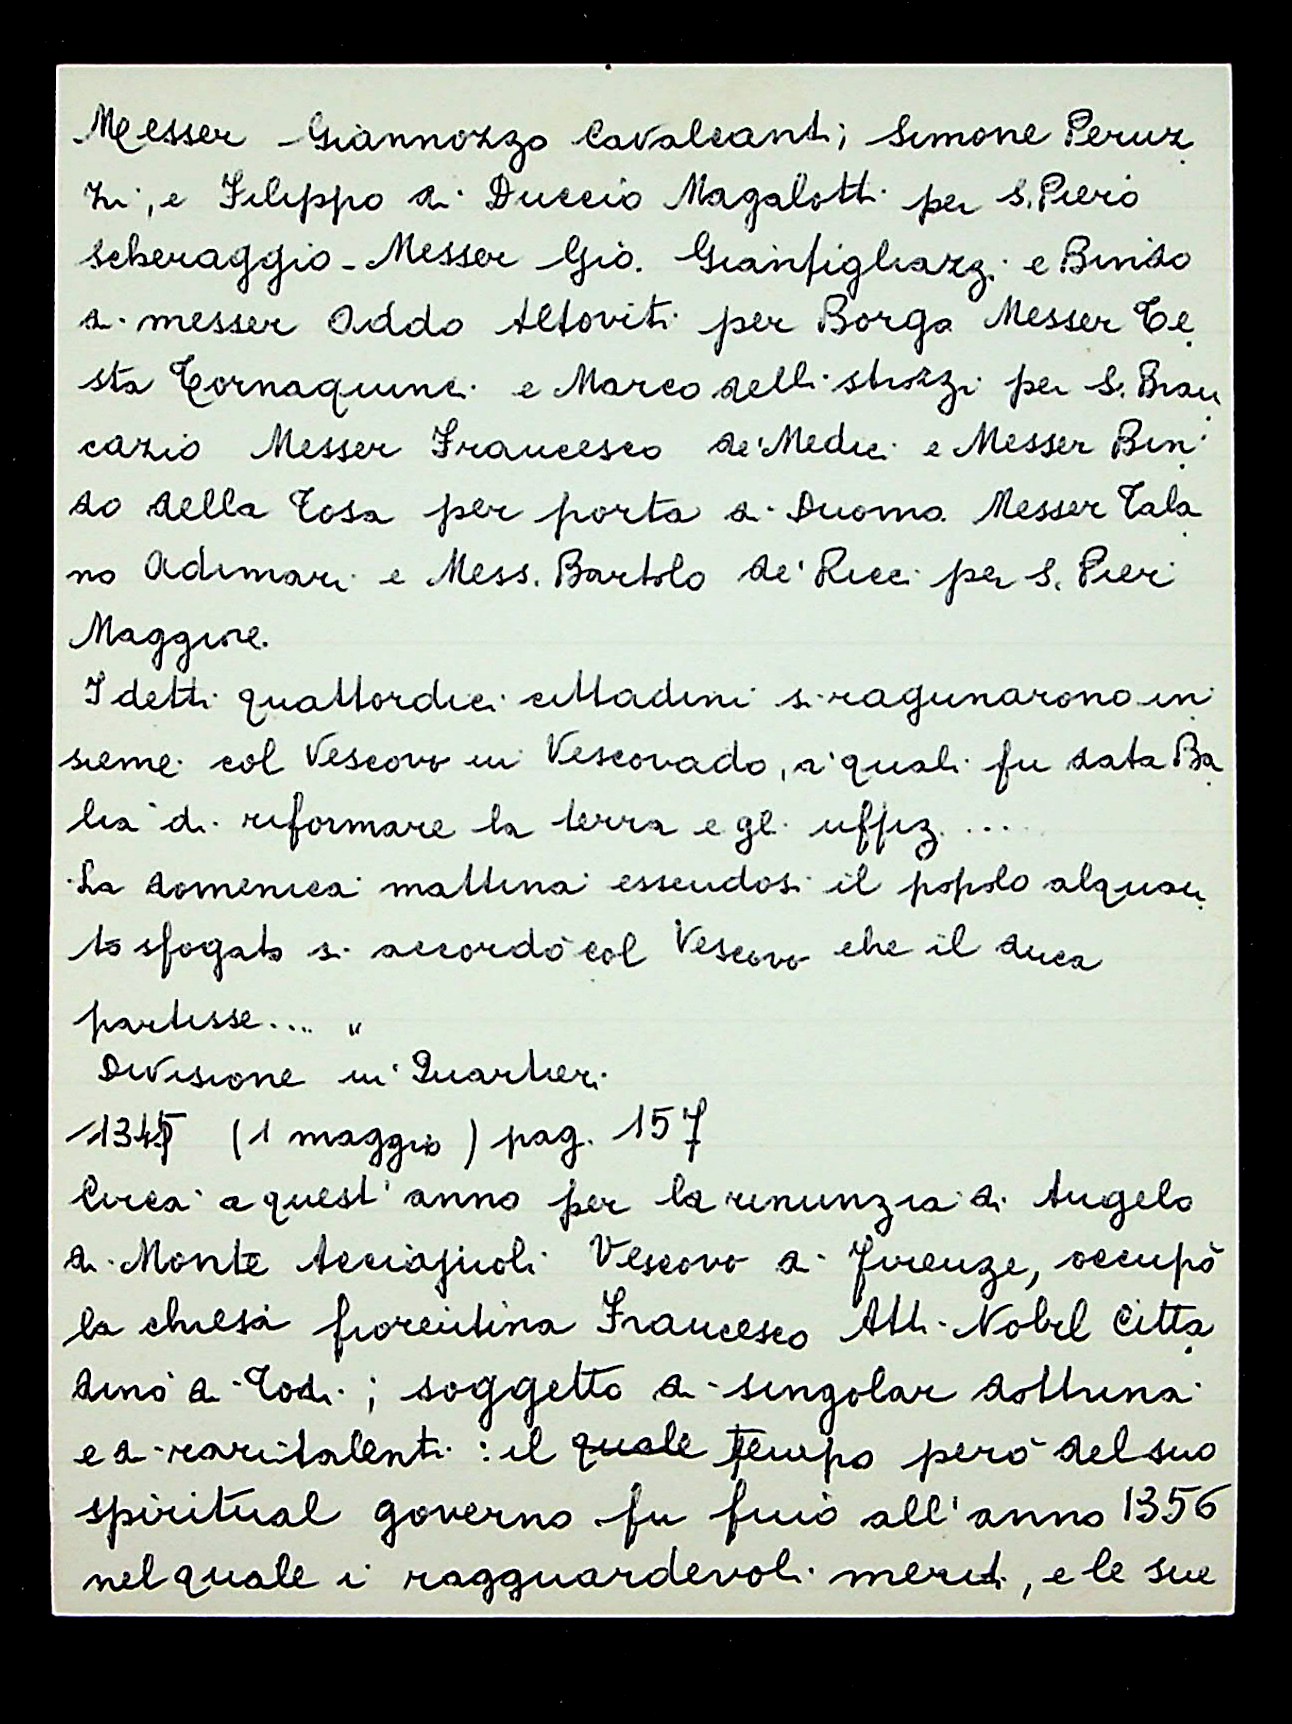 Messer Giannozzo Cavalcanti; Simone Peruz
zi, e Filippo di Duccio Magalotti per S. Piero
scheraggio - Messer Gio. Gianfigliazzi e Bindo
di messer Oddo Altoviti per Borgo Messer Te
sta Tornaquinci e Marco delli strozzi per S. Bran
cazio Messer Francesco de' Medici e Messer Bin
do della Tosa per porta di Duomo. Messer Tala
no Adimari e Mess. Bartolo de' Ricci per S. Pier
Maggiore.
I detti quattordici cittadini si ragunarono in
sieme col Vescovo in Vescovado, a' quali fu data Ba
lia di riformare la terra e gl. uffiz. ....
La domenica mattina essendosi il popolo alquan
to sfogato si accordò col Vescovo che il duca
partisse.... "
Divisione in Quartieri
1345 (1 maggio) pag. 157
Circa a quest' anno per la rinunzia di Angelo
di Monte Acciajuoli Vescovo di Firenze, occupò
la chiesa fiorentina Francesco Atti Nobil Citta
dino di Todi; soggetto di singolar dottrina
e di rari talenti: il quale Tempo però del suo
spiritual governo fu fino all' anno 1356
nel quale i ragguardevoli meriti, e le sue